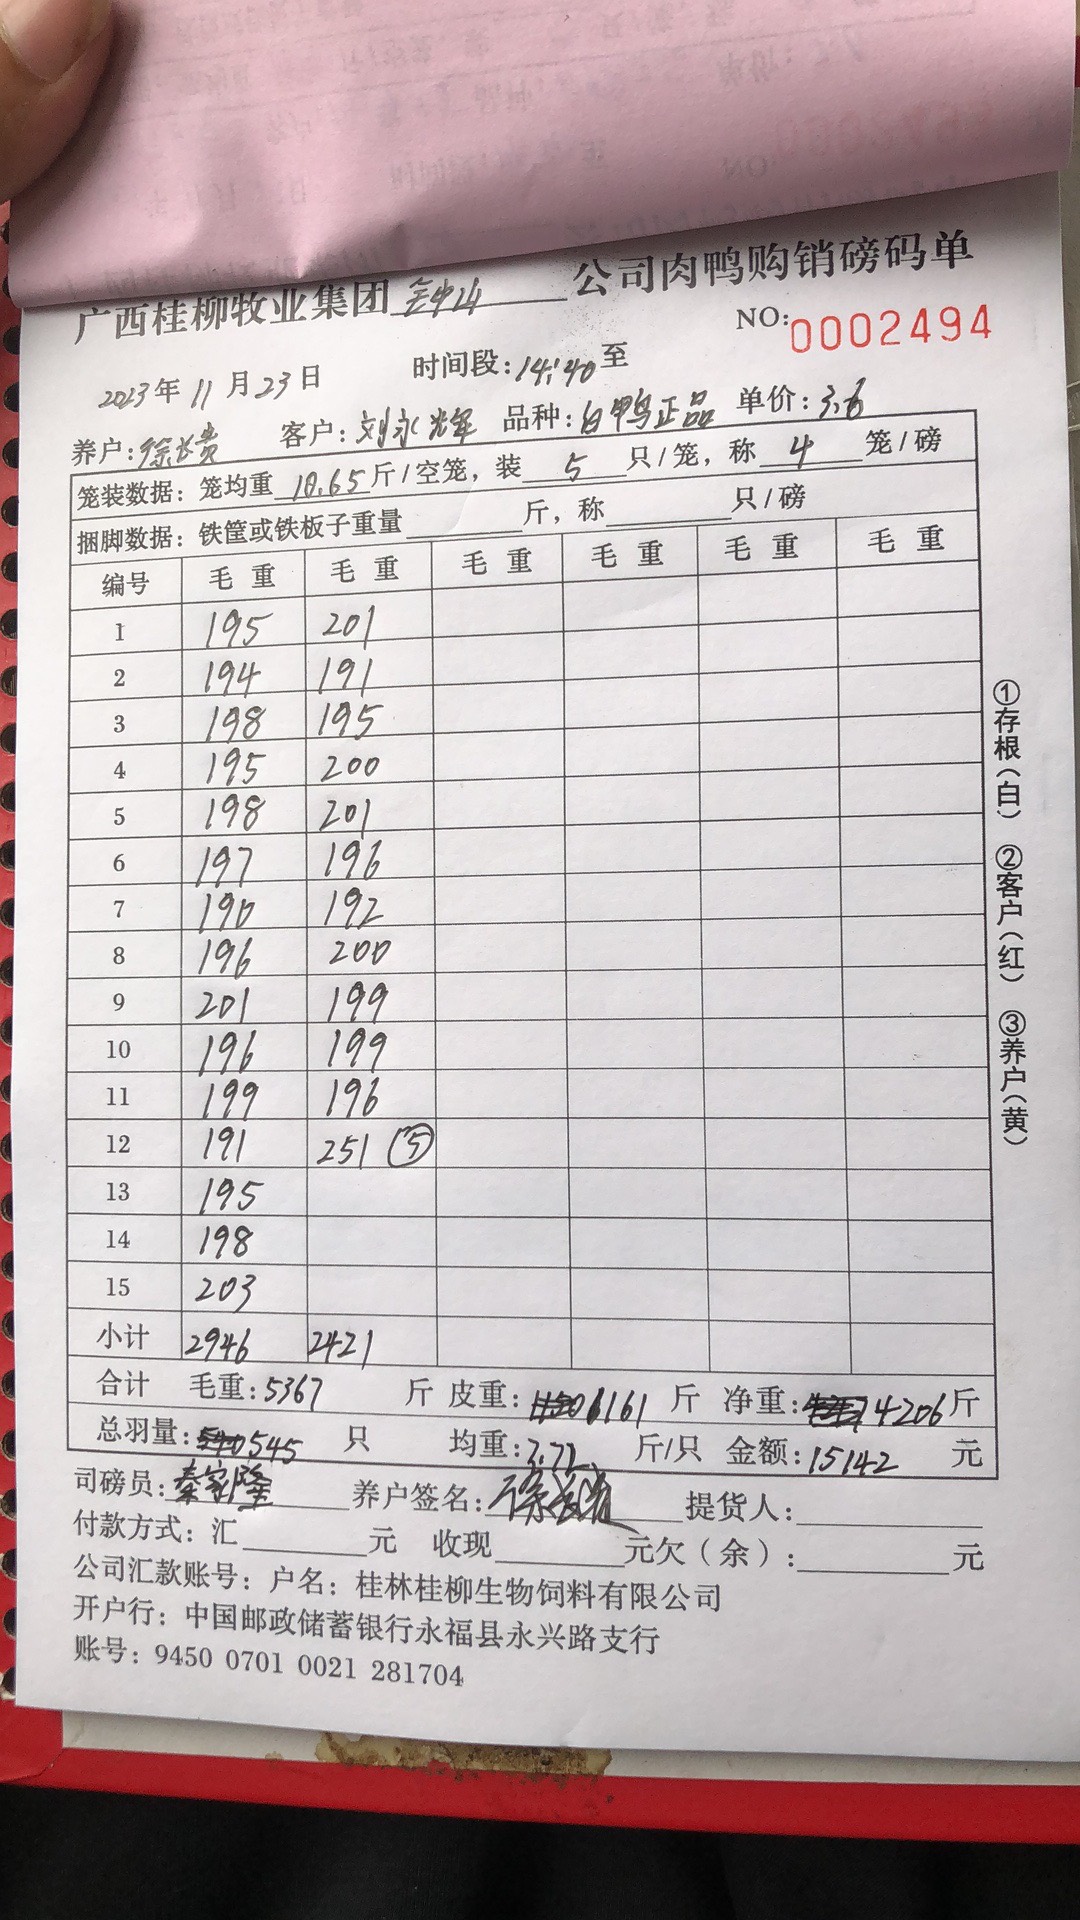 广西桂柳牧业集团 公司肉鸭购销磅码单
NO:0002494
2023年11月23日 时间段:14:40至
养户:徐长贵 客户:刘永辉 品种:白鸭正品 单价:3.6
笼装数据: 笼均重10.65斤/空笼, 装5只/笼, 称4笼/磅
捆脚数据: 铁筐或铁板子重量 斤, 称 只/磅
编号 毛重 毛重 毛重 毛重 毛重 毛重
1 195 201
2 194 191
3 198 195
4 195 200
5 198 201
6 197 196
7 190 192
8 196 200
9 201 199
10 196 199
11 199 196
12 191 251 ⑤
13 195
14 198
15 203
小计 2946 2421
合计 毛重:5367 斤 皮重:1161 斤 净重:4206斤
总羽量:545 只 均重:7.72 斤/只 金额:15142 元
司磅员:秦家隆 养户签名:徐长贵 提货人:
付款方式: 汇 元 收现 元欠(余): 元
公司汇款账号: 户名: 桂林桂柳生物饲料有限公司
开户行: 中国邮政储蓄银行永福县永兴路支行
账号: 9450 0701 0021 281704
①存根(白) ②客户(红) ③养户(黄)